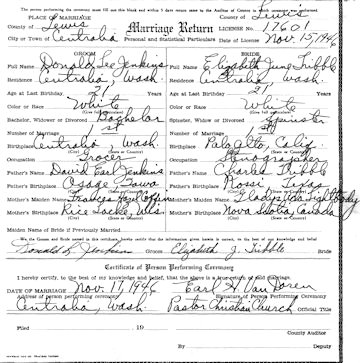 The person performing the ceremony must fill out this blank and within 5 days return same to the Auditor of the County in which the License is issued
PLACE OF MARRIAGE County of Lewis
County of Lewis Marriage Return LICENSE No. 17601
City or Town of Centralia Personal and Statistical Particulars Date of License Nov. 15, 1946
GROOM BRIDE
Full Name Donald Lee Jenkins Full Name Elizabeth June Tribble
Residence Centralia Wash. Residence Centralia Wash.
Age at Last Birthday 21 Age at Last Birthday 21
Color or Race White Color or Race White
Bachelor, Widower or Divorced Bachelor Spinster, Widow or Divorced Spinster
Number of Marriage 1st Number of Marriage 1st
Birthplace Centralia, Wash. Birthplace Palo Alto, Calif.
(City) (State or Country) (City) (State or Country)
Occupation Grocer Occupation Stenographer
Father's Name David Earl Jenkins Father's Name Charles Tribble
Father's Birthplace Osage Iowa Father's Birthplace Texas
Mother's Name Frances Mother's Name Gladys
Mother's Birthplace Rice Lake, Wis. Mother's Birthplace Nova Scotia, Canada
Maiden Name of Bride if Previously Married
We, the Groom and Bride named in this certificate, hereby certify that the information given herein is correct, to the best of our knowledge and belief.
Donald L. Jenkins Groom Elizabeth J. Tribble Bride
Certificate of Person Performing Ceremony
I hereby certify, to the best of my knowledge and belief, that the above is a true return of said marriage.
DATE OF MARRIAGE Nov. 17, 1946 Earl H. Van Doren
Address of person performing ceremony Signature of Person Performing Ceremony
Centralia, Wash. Pastor Christian Church Official Title
Filed 19
County Auditor
By Deputy